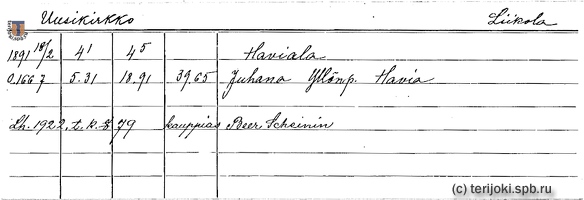 Uusikirkko Liikola
1891 18/2 4¹ 4⁵ Haviala
0.1667 5.31 18.91 39.65 Juhana Yllönp. Havia
Lh. 1922, t.k. § 79 kauppias Beer Scheinin
(c) terijoki.spb.ru